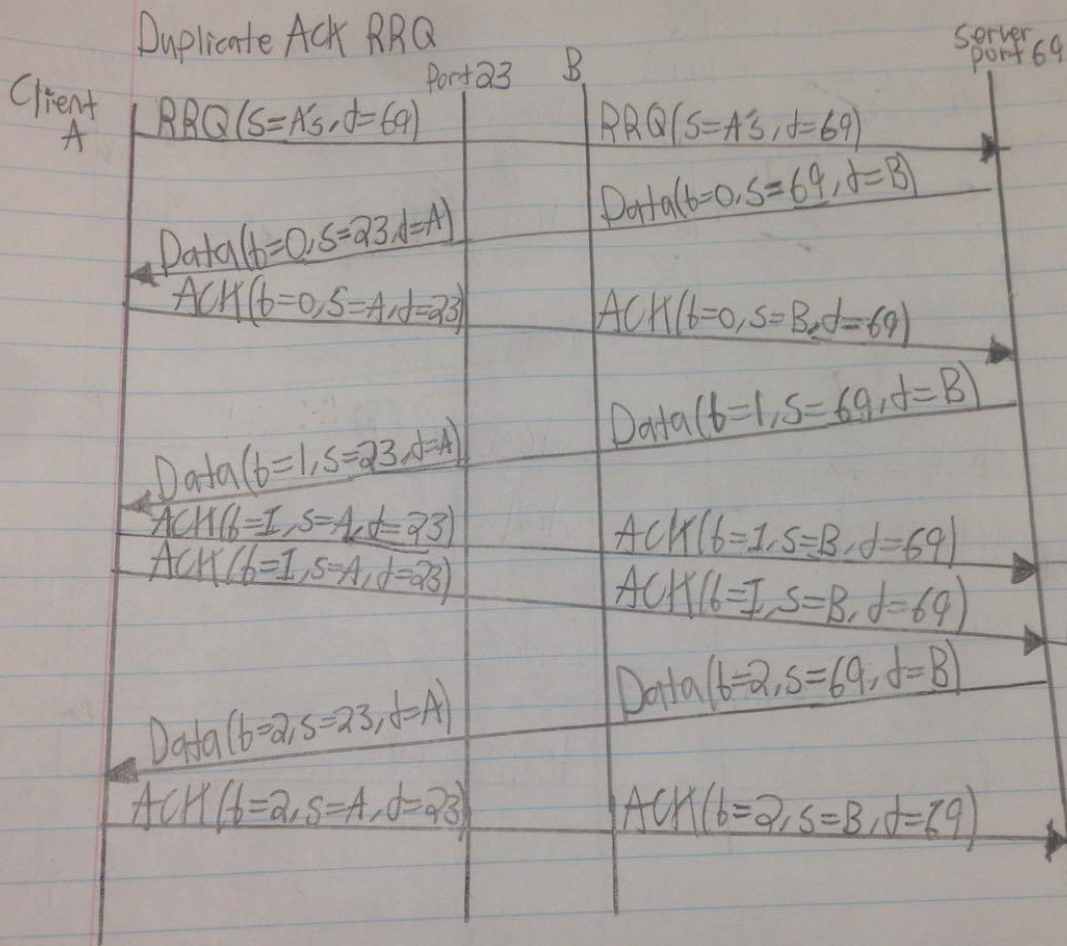 Duplicate ACK RRQ
Client A
Port 23
B
Server port 69
RRQ(S=A's, d=69)
RRQ(S=A's, d=69)
Data(b=0, S=69, d=B)
Data(b=0, S=23, d=A)
ACK(b=0, S=A, d=23)
ACK(b=0, S=B, d=69)
Data(b=1, S=69, d=B)
Data(b=1, S=23, d=A)
ACK(b=I, S=A, d=23)
ACK(b=I, S=B, d=69)
ACK(b=I, S=A, d=23)
ACK(b=I, S=B, d=69)
Data(b=2, S=69, d=B)
Data(b=2, S=23, d=A)
ACK(b=2, S=A, d=23)
ACK(b=2, S=B, d=69)